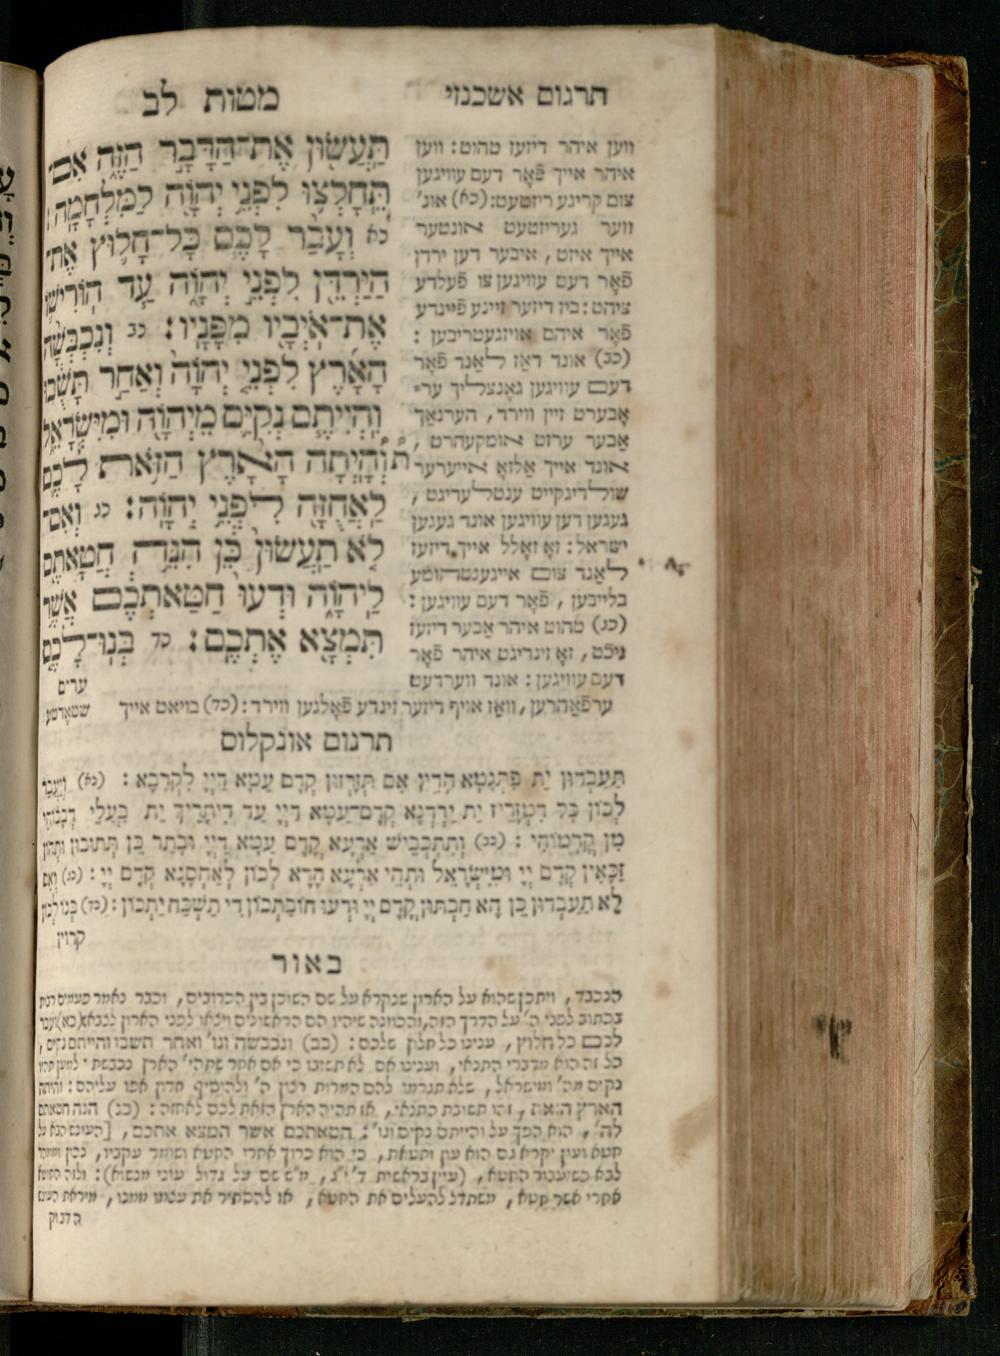 תרגום אשכנזי
מטות לב
תַּעֲשׂוּן אֶת־הַדָּבָר הַזֶּה אִם־
תֵּחָלְצוּ לִפְנֵי יְהוָֹה לַמִּלְחָמָה׃
כא וְעָבַר לָכֶם כָּל־חָלוּץ אֶת־
הַיַּרְדֵּן לִפְנֵי יְהוָֹה עַד הוֹרִישׁוֹ
אֶת־אֹיְבָיו מִפָּנָיו׃ כב וְנִכְבְּשָׁה
הָאָרֶץ לִפְנֵי יְהוָֹה וְאַחַר תָּשֻׁבוּ
וִהְיִיתֶם נְקִיִּם מֵיְהוָֹה וּמִיִּשְׂרָאֵל
וְהָיְתָה הָאָרֶץ הַזֹּאת לָכֶם
לַאֲחֻזָּה לִפְנֵי יְהוָֹה׃ כג וְאִם־
לֹא תַעֲשׂוּן כֵּן הִנֵּה חֲטָאתֶם
לַיהוָֹה וּדְעוּ חַטַּאתְכֶם אֲשֶׁר
תִּמְצָא אֶתְכֶם׃ כד בְּנוּ־לָכֶם
ערים
ווען איהר דיזעז טהוט: ווען
איהר אייך פֿאָר דעם עוויגען
צום קריגע ריסטעט: (כא) אונ'
ווער געריסטעט אונטער
אייך איזט, איבער דען ירדן
פֿאָר דעם עוויגען צו פֿעלדע
ציהט: ביז דיזער זיינע פֿיינדע
פֿאָר איהם אויזגעטריבען:
(כב) אונד דאז לאנד פֿאָר
דעם עוויגען גאנצליך ער־
אָבערט זיין ווירד, הערנאך
אבער ערסט אומקעהרט,
אונד אייך אלזא אייערער
שולדיגקייט ענטלעדיגט,
געגען דען עוויגען אונד געגען
ישראל: זאָ זאָלל אייך דיזעז
לאנד צום אייגענטהומע
בלייבען, פֿאָר דעם עוויגען:
(כג) טהוט איהר אבער דיזעז
ניכט, זאָ זינדיגט איהר פֿאָר
דעם עוויגען: אונד ווערדעט
ערפֿאהרען, וואז אויף דיזער זינדע פֿאָלגען ווירד: (כד) בויאט אייך
שטאֶדטע
תרגום אונקלוס
תַּעְבְּדוּן יַת פִּתְגָּמָא הָדֵין אִם תִּזָּרְזוּן קֳדָם עַמָּא דַייָ לִקְרָבָא: (כא) וְיִעְבַר
לְכוֹן כָּל דִּמְזָרֵיז יַת יַרְדְּנָא קֳדָם־עַמָּא דַייָ עַד דִּיתָרֵיךְ יַת בַּעֲלֵי דְבָבוֹהִי
מִן קֳדָמוֹהִי: (כב) וְתִתְכְּבֵישׁ אַרְעָא קֳדָם עַמָּא דַייָ וּבָתַר כֵּן תְּתוּבוּן וּתְהוֹן
זַכָּאִין קֳדָם יְיָ וּמִיִּשְׂרָאֵל וּתְהֵי אַרְעָא הָדָא לְכוֹן לְאַחְסָנָא קֳדָם יְיָ: (כג) וְאִם
לָא תַעְבְּדוּן כֵּן הָא חַבְתּוּן קֳדָם יְיָ וּדְעוּ חוֹבַתְכוֹן דִּי תַשְׁכַּח יַתְכוֹן: (כד) בְּנוֹ לְכוֹן
קרוין
באור
הנכבד, ויתכן שהוא על הארון שנקרא על שם השוכן בין הכרובים, וכבר נאמר פעמים רבות
בכתוב לפני ה' על הדרך הזה, והכוונה שיהיו הם הראשונים ויצאו לפני הארון לצבא: (כא) ועבר
לכם כל חלוץ, ענינו כל חלוץ שלכם: (כב) ונכבשה וגו' ואחר תשבו והייתם נקים,
כל זה הוא מדברי התנאי, וענינו אם לא תשובו כי אם אחר שתהי' הארץ נכבשת למען תהיו
נקים מה' ומישראל, שלא תגרמו להם המרות רצון ה' ולהוסיף חרון אפו עליהם: והיתה
הארץ הזאת, זהו תשובת התנאי, אז תהיה הארץ הזאת לכם לאחזה: (כג) הנה חטאתם
לה', הוא הפך על והייתם נקים וגו': חטאתכם אשר תמצא אתכם, [העונש הבא על
חטא ועון יקרא גם הוא עון וחטאת, כי הוא כרוך אחרי החטא ושומר עקביו,
לבא כשיעבור החטא, (עיין בראשית ד' י"ג, מ"ש שם על גדול עוני מנשוא): ולזה החוטא
אחרי אשר חטא, משתדל להעלים את החטא, או להסתיר את עצמו ממנו, מיראת העונש
הדבוק